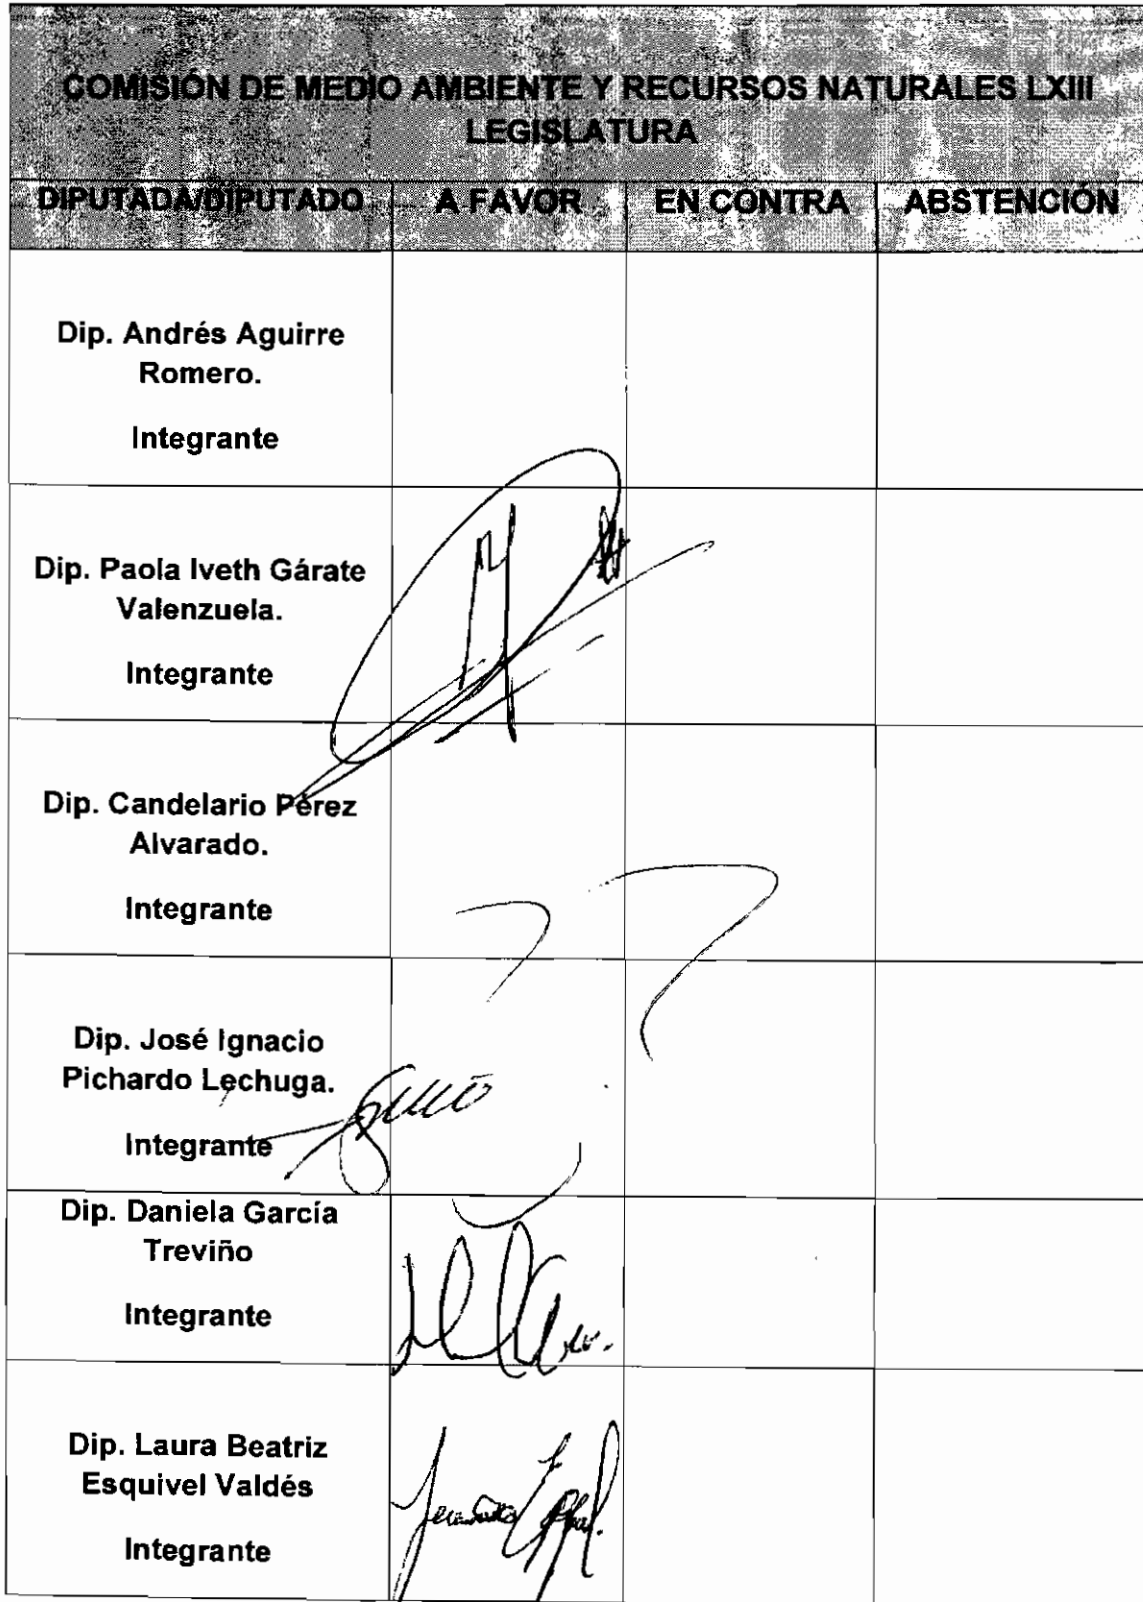 COMISIÓN DE MEDIO AMBIENTE Y RECURSOS NATURALES LXIII
LEGISLATURA
DIPUTADA/DIPUTADO A FAVOR EN CONTRA ABSTENCIÓN
Dip. Andrés Aguirre
Romero.
Integrante
Dip. Paola Iveth Gárate
Valenzuela.
Integrante
Dip. Candelario Pérez
Alvarado.
Integrante
Dip. José Ignacio
Pichardo Lechuga.
Integrante
Dip. Daniela García
Treviño
Integrante
Dip. Laura Beatriz
Esquivel Valdés
Integrante